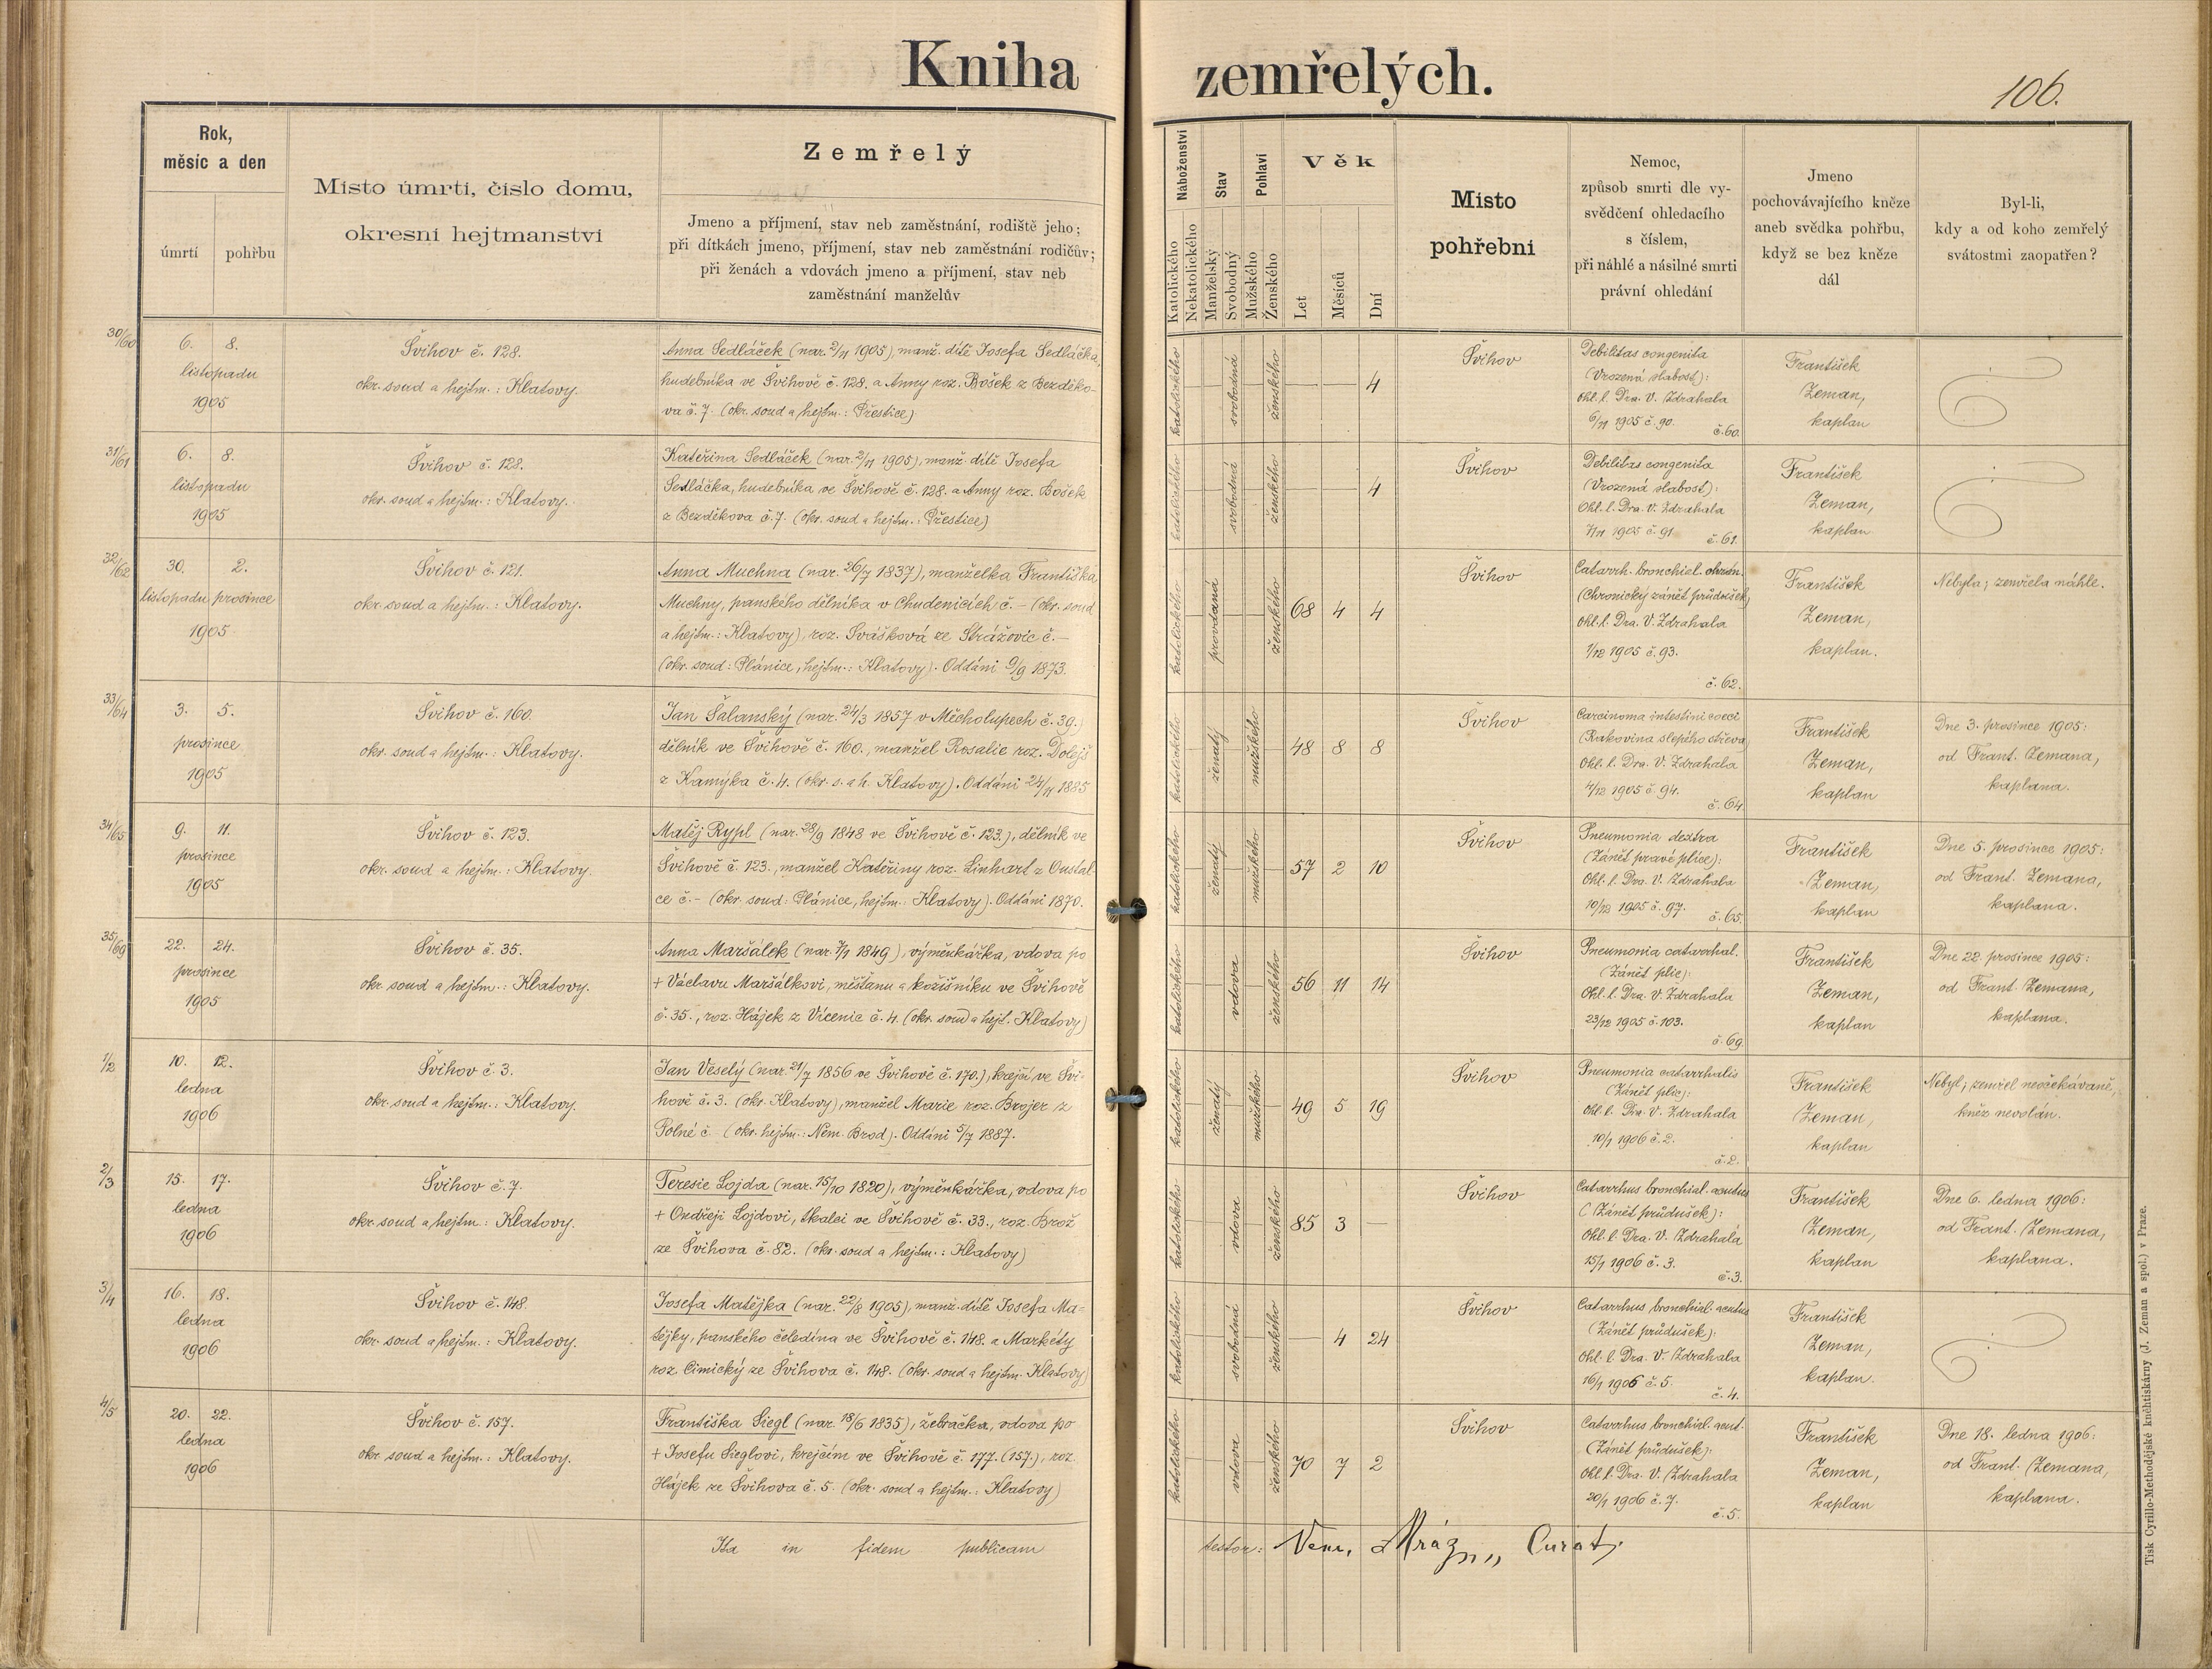 Kniha zemřelých.
106.
Rok,
měsíc a den
úmrtí
pohřbu
Místo úmrtí, číslo domu,
okresní hejtmanství
Zemřelý
Jmeno a příjmení, stav neb zaměstnání, rodiště jeho;
při dítkách jmeno, příjmení, stav neb zaměstnání rodičův;
při ženách a vdovách jmeno a příjmení, stav neb
zaměstnání manželův
Náboženství
Katolického
Nekatolického
Stav
Manželský
Svobodný
Pohlaví
Mužského
Ženského
Věk
Let
Měsíců
Dní
Místo
pohřební
Nemoc,
způsob smrti dle vy-
svědčení ohledacího
s číslem,
při náhlé a násilné smrti
právní ohledání
Jmeno
pochovávajícího kněze
aneb svědka pohřbu,
když se bez kněze
dál
Byl-li,
kdy a od koho zemřelý
svátostmi zaopatřen?
30/60
6. 8.
listopadu
1905
Švihov č. 128.
okr. soud a hejtm.: Klatovy.
Anna Sedláček (nar. 2/11 1905), manž. dítě Josefa Sedláčka,
hudebníka ve Švihově č. 128. a Anny roz. Bošek z Bezděko-
va č. 7. (okr. soud a hejtm.: Přestice)
katolického
svobodná
ženského
4
Švihov
Debilitas congenita
(Vrozená slabost):
Ohl. l. Dra. V. Zdrahala
6/11 1905 č. 90.
č. 60.
František
Zeman,
kaplan
31/61
6. 8.
listopadu
1905
Švihov č. 128.
okr. soud a hejtm.: Klatovy.
Kateřina Sedláček (nar. 2/11 1905), manž. dítě Josefa
Sedláčka, hudebníka ve Švihově č. 128. a Anny roz. Bošek
z Bezděkova č. 7. (okr. soud a hejtm.: Přestice)
katolického
svobodná
ženského
4
Švihov
Debilitas congenita
(Vrozená slabost):
Ohl. l. Dra. V. Zdrahala
7/11 1905 č. 91
č. 61.
František
Zeman,
kaplan
32/62
30. 2.
listopadu prosince
1905
Švihov č. 121.
okr. soud a hejtm.: Klatovy.
Anna Muchna (nar. 26/7 1837), manželka Františka
Muchny, panského dělníka v Chudenicích č. – (okr. soud
a hejtm.: Klatovy), roz. Svášková ze Strážovic č. –
(okr. soud: Plánice, hejtm.: Klatovy). Oddáni 9/9 1873.
katolického
provdaná
ženského
68 4 4
Švihov
Catarrh. bronchiel. chron.
(Chronický zánět průdušek)
Ohl. l. Dra. V. Zdrahala
1/12 1905 č. 93.
č. 62.
František
Zeman,
kaplan.
Nebyla; zemřela náhle.
33/64
3. 5.
prosince
1905
Švihov č. 160.
okr. soud a hejtm.: Klatovy.
Jan Šalanský (nar. 24/3 1857 v Měcholupech č. 39.)
dělník ve Švihově č. 160., manžel Rosalie roz. Dolejš
z Kamýka č. 4. (okr. s. a h. Klatovy). Oddáni 24/11 1885
katolického
ženatý
mužského
48 8 8
Švihov
Carcinoma intestini coeci
(Rakovina slepého střeva)
Ohl. l. Dra. V. Zdrahala
4/12 1905 č. 94.
č. 64
František
Zeman,
kaplan
Dne 3. prosince 1905:
od Frant. Zemana,
kaplana.
34/65
9. 11.
prosince
1905
Švihov č. 123.
okr. soud a hejtm.: Klatovy.
Matěj Rypl (nar. 28/9 1848 ve Švihově č. 123.), dělník ve
Švihově č. 123., manžel Kateřiny roz. Linhart z Oustal-
ce č. – (okr. soud: Plánice, hejtm.: Klatovy). Oddáni 1870.
katolického
ženatý
mužského
57 2 10
Švihov
Pneumonia dextra
(Zánět pravé plíce):
Ohl. l. Dra. V. Zdrahala
10/12 1905 č. 97.
č. 65.
František
Zeman,
kaplan
Dne 5. prosince 1905:
od Frant. Zemana,
kaplana.
35/69
22. 24.
prosince
1905
Švihov č. 35.
okr. soud a hejtm.: Klatovy.
Anna Maršálek (nar. 7/1 1849), výměnkářka, vdova po
+ Václavu Maršálkovi, měšťanu a kožišníku ve Švihově
č. 35., roz. Hájek z Vícenic č. 4. (okr. soud a hejt. Klatovy)
katolického
vdova
ženského
56 11 14
Švihov
Pneumonia catarrhal.
(Zánět plic):
Ohl. l. Dra. V. Zdrahala
23/12 1905 č. 103.
č. 69.
František
Zeman,
kaplan
Dne 22. prosince 1905:
od Frant. Zemana,
kaplana.
1/2
10. 12.
ledna
1906
Švihov č. 3.
okr. soud a hejtm.: Klatovy.
Jan Veselý (nar. 21/7 1856 ve Švihově č. 170.), krejčí ve Švi-
hově č. 3. (okr. Klatovy), manžel Marie roz. Brojer z
Polné č. (okr. hejtm.: Něm. Brod). Oddáni 5/7 1887.
katolického
ženatý
mužského
49 5 19
Švihov
Pneumonia catarrhalis
(Zánět plic):
Ohl. l. Dra. V. Zdrahala
10/1 1906 č. 2.
č. 2.
František
Zeman,
kaplan
Nebyl; zemřel neočekávaně,
kněz nevolán.
2/3
15. 17.
ledna
1906
Švihov č. 7.
okr. soud a hejtm.: Klatovy.
Teresie Lojda (nar. 15/10 1820), výměnkářka, vdova po
+ Ondřeji Lojdovi, tkalci ve Švihově č. 33., roz. Brož
ze Švihova č. 82. (okr. soud a hejtm.: Klatovy)
katolického
vdova
ženského
85 3 –
Švihov
Catarrhus bronchial. acutus
(Zánět průdušek):
Ohl. l. Dra. V. Zdrahala
15/1 1906 č. 3.
č. 3.
František
Zeman,
kaplan
Dne 6. ledna 1906:
od Frant. Zemana,
kaplana.
3/4
16. 18.
ledna
1906
Švihov č. 148.
okr. soud a hejtm.: Klatovy.
Josefa Matějka (nar. 22/8 1905), manž. dítě Josefa Ma-
tějky, panského čeledína ve Švihově č. 148. a Markéty
roz. Cimický ze Švihova č. 148. (okr. soud a hejtm. Klatovy)
katolického
svobodná
ženského
4 24
Švihov
Catarrhus bronchial. acutus
(Zánět průdušek):
Ohl. l. Dra. V. Zdrahala
16/1 1906 č. 5.
č. 4.
František
Zeman,
kaplan.
4/5
20. 22.
ledna
1906
Švihov č. 157.
okr. soud a hejtm.: Klatovy.
Františka Siegl (nar. 18/6 1835), žebračka, vdova po
+ Josefu Sieglovi, krejčím ve Švihově č. 177. (157.), roz.
Hájek ze Švihova č. 5. (okr. soud a hejtm.: Klatovy)
katolického
vdova
ženského
70 7 2
Švihov
Catarrhus bronchial. acut.
(Zánět průdušek):
Ohl. l. Dra. V. Zdrahala
20/1 1906 č. 7.
č. 5.
František
Zeman,
kaplan
Dne 18. ledna 1906:
od Frant. Zemana,
kaplana.
Ita in fidem publicam testor: Mráz Curat.
Tisk Cyrillo-Methodějské knihtiskárny (J. Zeman a spol.) v Praze.